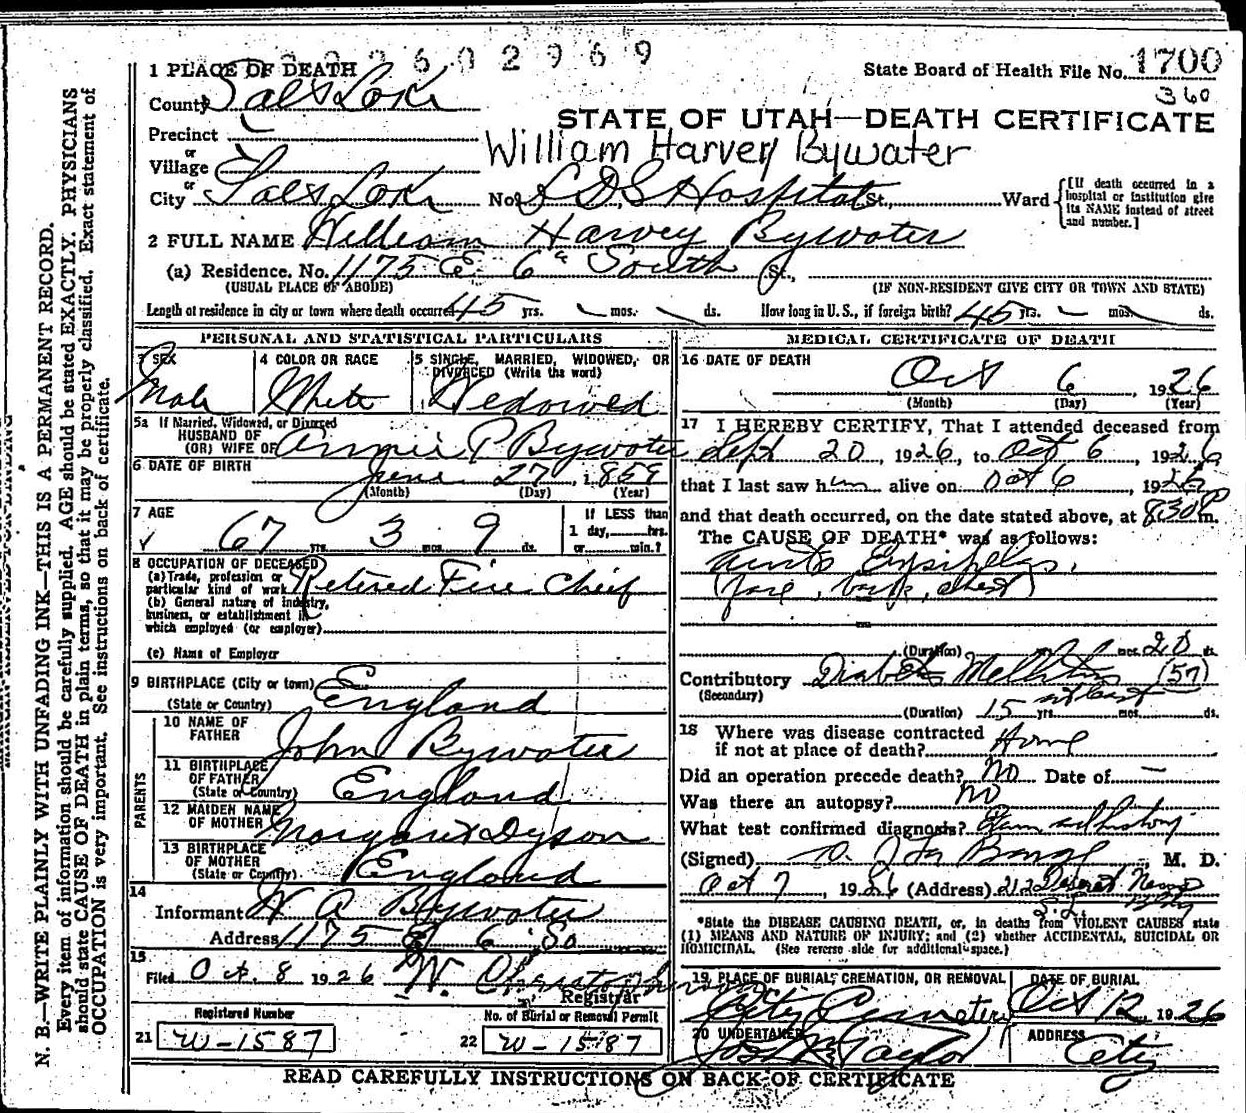 2602969
1 PLACE OF DEATH
State Board of Health File No. 1700
360
County Salt Lake
STATE OF UTAH—DEATH CERTIFICATE
Precinct
or
William Harvey Bywater
Village
or
City Salt Lake No. L D S Hospital St., Ward
[If death occurred in a hospital or institution give its NAME instead of street and number.]
2 FULL NAME William Harvey Bywater
(a) Residence. No. 1175 E 6th South St.,
(USUAL PLACE OF ABODE) (IF NON-RESIDENT GIVE CITY OR TOWN AND STATE)
Length of residence in city or town where death occurred 45 yrs. — mos. ds. How long in U. S., if foreign birth? 45 yrs. — mos. ds.
PERSONAL AND STATISTICAL PARTICULARS
3 SEX
Male
4 COLOR OR RACE
White
5 SINGLE, MARRIED, WIDOWED, OR
DIVORCED (Write the word)
Widowed
5a If Married, Widowed, or Divorced
HUSBAND OF
(OR) WIFE OF Annie P Bywater
6 DATE OF BIRTH June 27, 1859
(Month) (Day) (Year)
7 AGE
67 yrs. 3 mos. 9 ds.
If LESS than
1 day, hrs.
or min.?
8 OCCUPATION OF DECEASED
(a) Trade, profession or
particular kind of work Retired Fire Chief
(b) General nature of industry,
business, or establishment in
which employed (or employer)
(c) Name of Employer
9 BIRTHPLACE (City or town)
(State or Country) England
PARENTS
10 NAME OF
FATHER John Bywater
11 BIRTHPLACE
OF FATHER
(State or Country) England
12 MAIDEN NAME
OF MOTHER Margaret Dyson
13 BIRTHPLACE
OF MOTHER
(State or Country) England
14
Informant W A Bywater
Address 1175 E 6 So
15
Filed Oct. 8 1926 W. Christopherson
Registrar
Registered Number
21 W-1587
No. of Burial or Removal Permit
22 W-1587
MEDICAL CERTIFICATE OF DEATH
16 DATE OF DEATH
Oct 6, 1926
(Month) (Day) (Year)
17 I HEREBY CERTIFY, That I attended deceased from
Sept 20, 1926, to Oct 6, 1926
that I last saw him alive on Oct 6, 1926
and that death occurred, on the date stated above, at 830P m.
The CAUSE OF DEATH* was as follows:
Erysipelas,
(face, chest)
(Duration) yrs. mos. 20 ds.
Contributory Diabetes Mellitus (57)
(Secondary) at least
(Duration) 15 yrs. mos. ds.
18 Where was disease contracted
if not at place of death? Home
Did an operation precede death? No Date of —
Was there an autopsy? No
What test confirmed diagnosis?
(Signed) M. D.
Oct 7, 1926 (Address) 212 Deseret News
S.L. City
*State the DISEASE CAUSING DEATH, or, in deaths from VIOLENT CAUSES state
(1) MEANS AND NATURE OF INJURY; and (2) whether ACCIDENTAL, SUICIDAL OR
HOMICIDAL. (See reverse side for additional space.)
19 PLACE OF BURIAL, CREMATION, OR REMOVAL
City Cemetery
DATE OF BURIAL
Oct 12, 1926
20 UNDERTAKER
Taylor
ADDRESS
City
READ CAREFULLY INSTRUCTIONS ON BACK OF CERTIFICATE
N. B.—WRITE PLAINLY WITH UNFADING INK—THIS IS A PERMANENT RECORD.
Every item of information should be carefully supplied. AGE should be stated EXACTLY. PHYSICIANS
should state CAUSE OF DEATH in plain terms, so that it may be properly classified. Exact statement of
OCCUPATION is very important. See instructions on back of certificate.